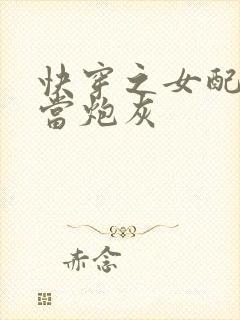 快穿之女配
當炮灰
赤念